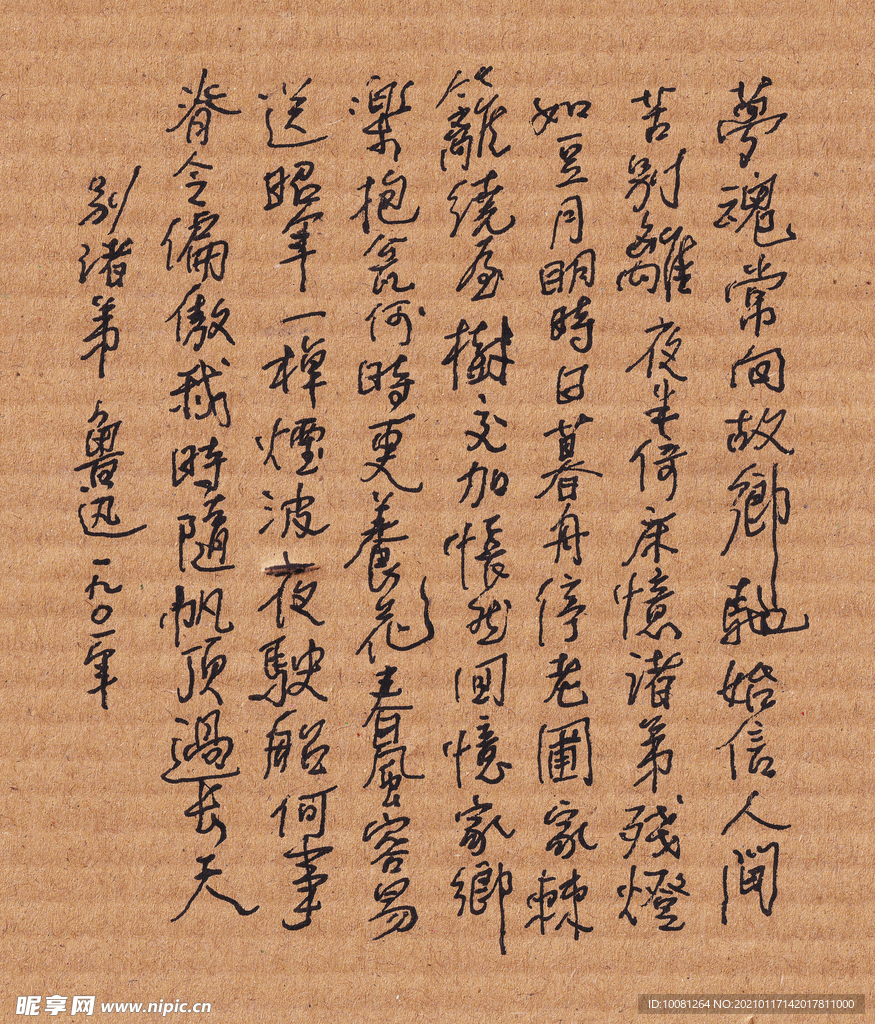 夢魂常向故鄉馳始信人間
苦别離夜半倚床憶諸弟残燈
如豆月明時日暮舟停老圃家棘
籬繞屋樹交加悵然回憶家鄉
樂抱瓮何時更養花春風容易
送昭年一棹煙波夜駛船何事
脊令偏傲我時隨帆頂過长天
别諸弟 魯迅 一九〇一年
昵享网 www.nipic.cn
ID:10081264 NO:20210117142017811000